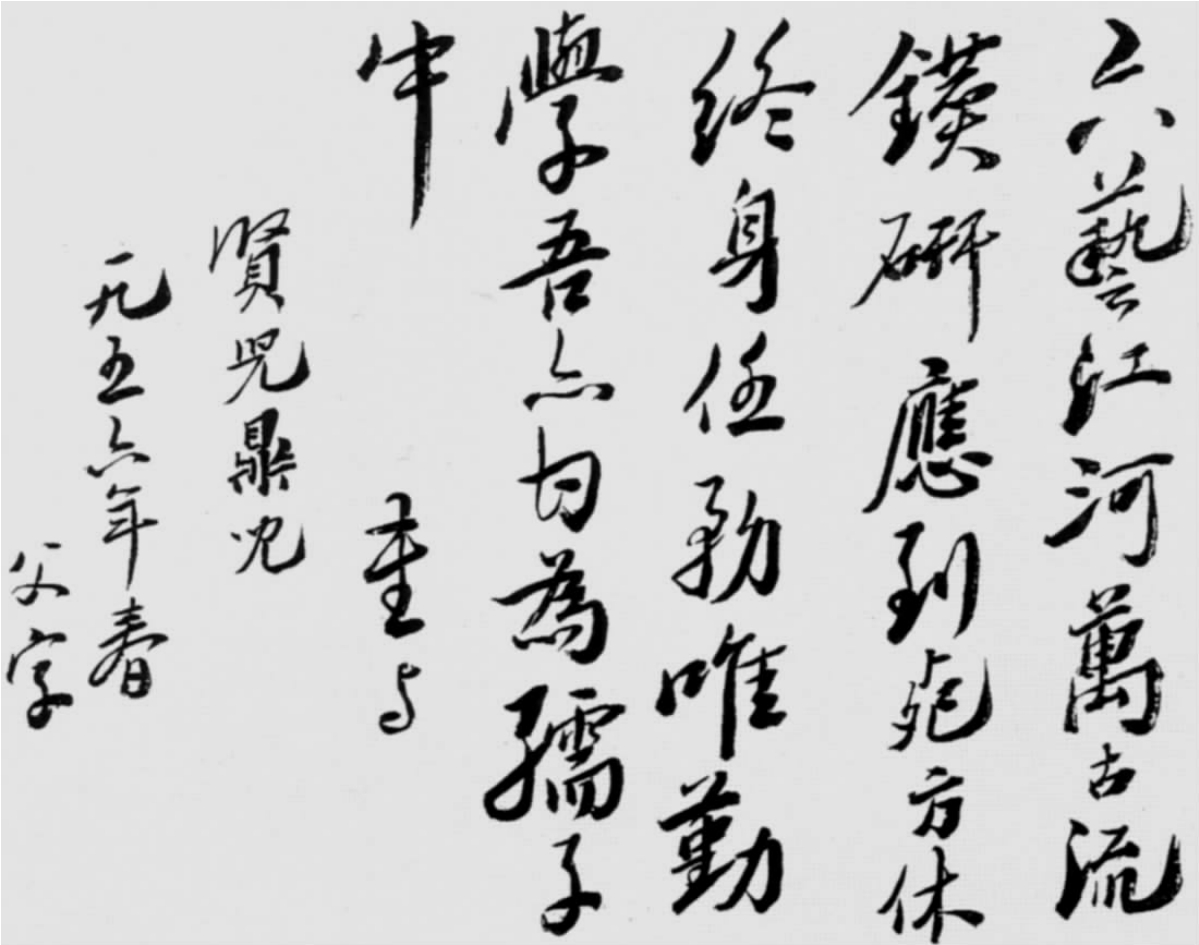 六藝江河萬古流
鑽研應到死方休
終身任務唯勤
學吾亦甘為孺子
牛 書与
賢兒鼎兒
一九五六年春
父字